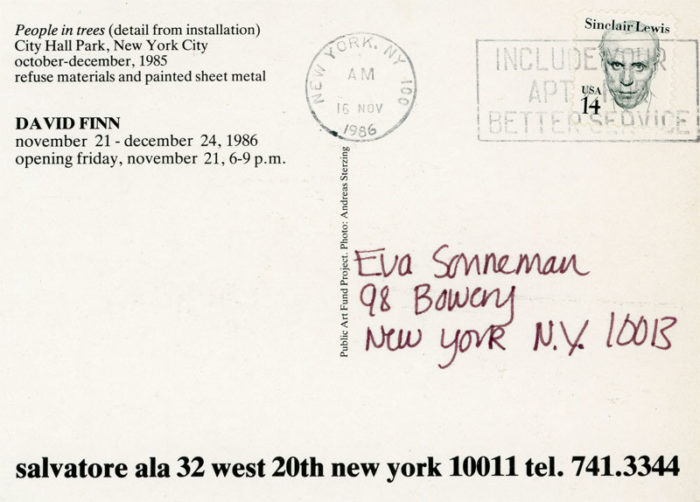 People in trees (detail from installation)
City Hall Park, New York City
october-december, 1985
refuse materials and painted sheet metal
DAVID FINN
november 21 - december 24, 1986
opening friday, november 21, 6-9 p.m.
NEW YORK, NY 100
AM
16 NOV
1986
INCLUDE YOUR
APT
BETTER SERVICE
Sinclair Lewis
USA
14
Public Art Fund Project. Photo: Andreas Sterzing
Eva Sonneman
98 Bowery
New York N.Y. 10013
salvatore ala 32 west 20th new york 10011 tel. 741.3344